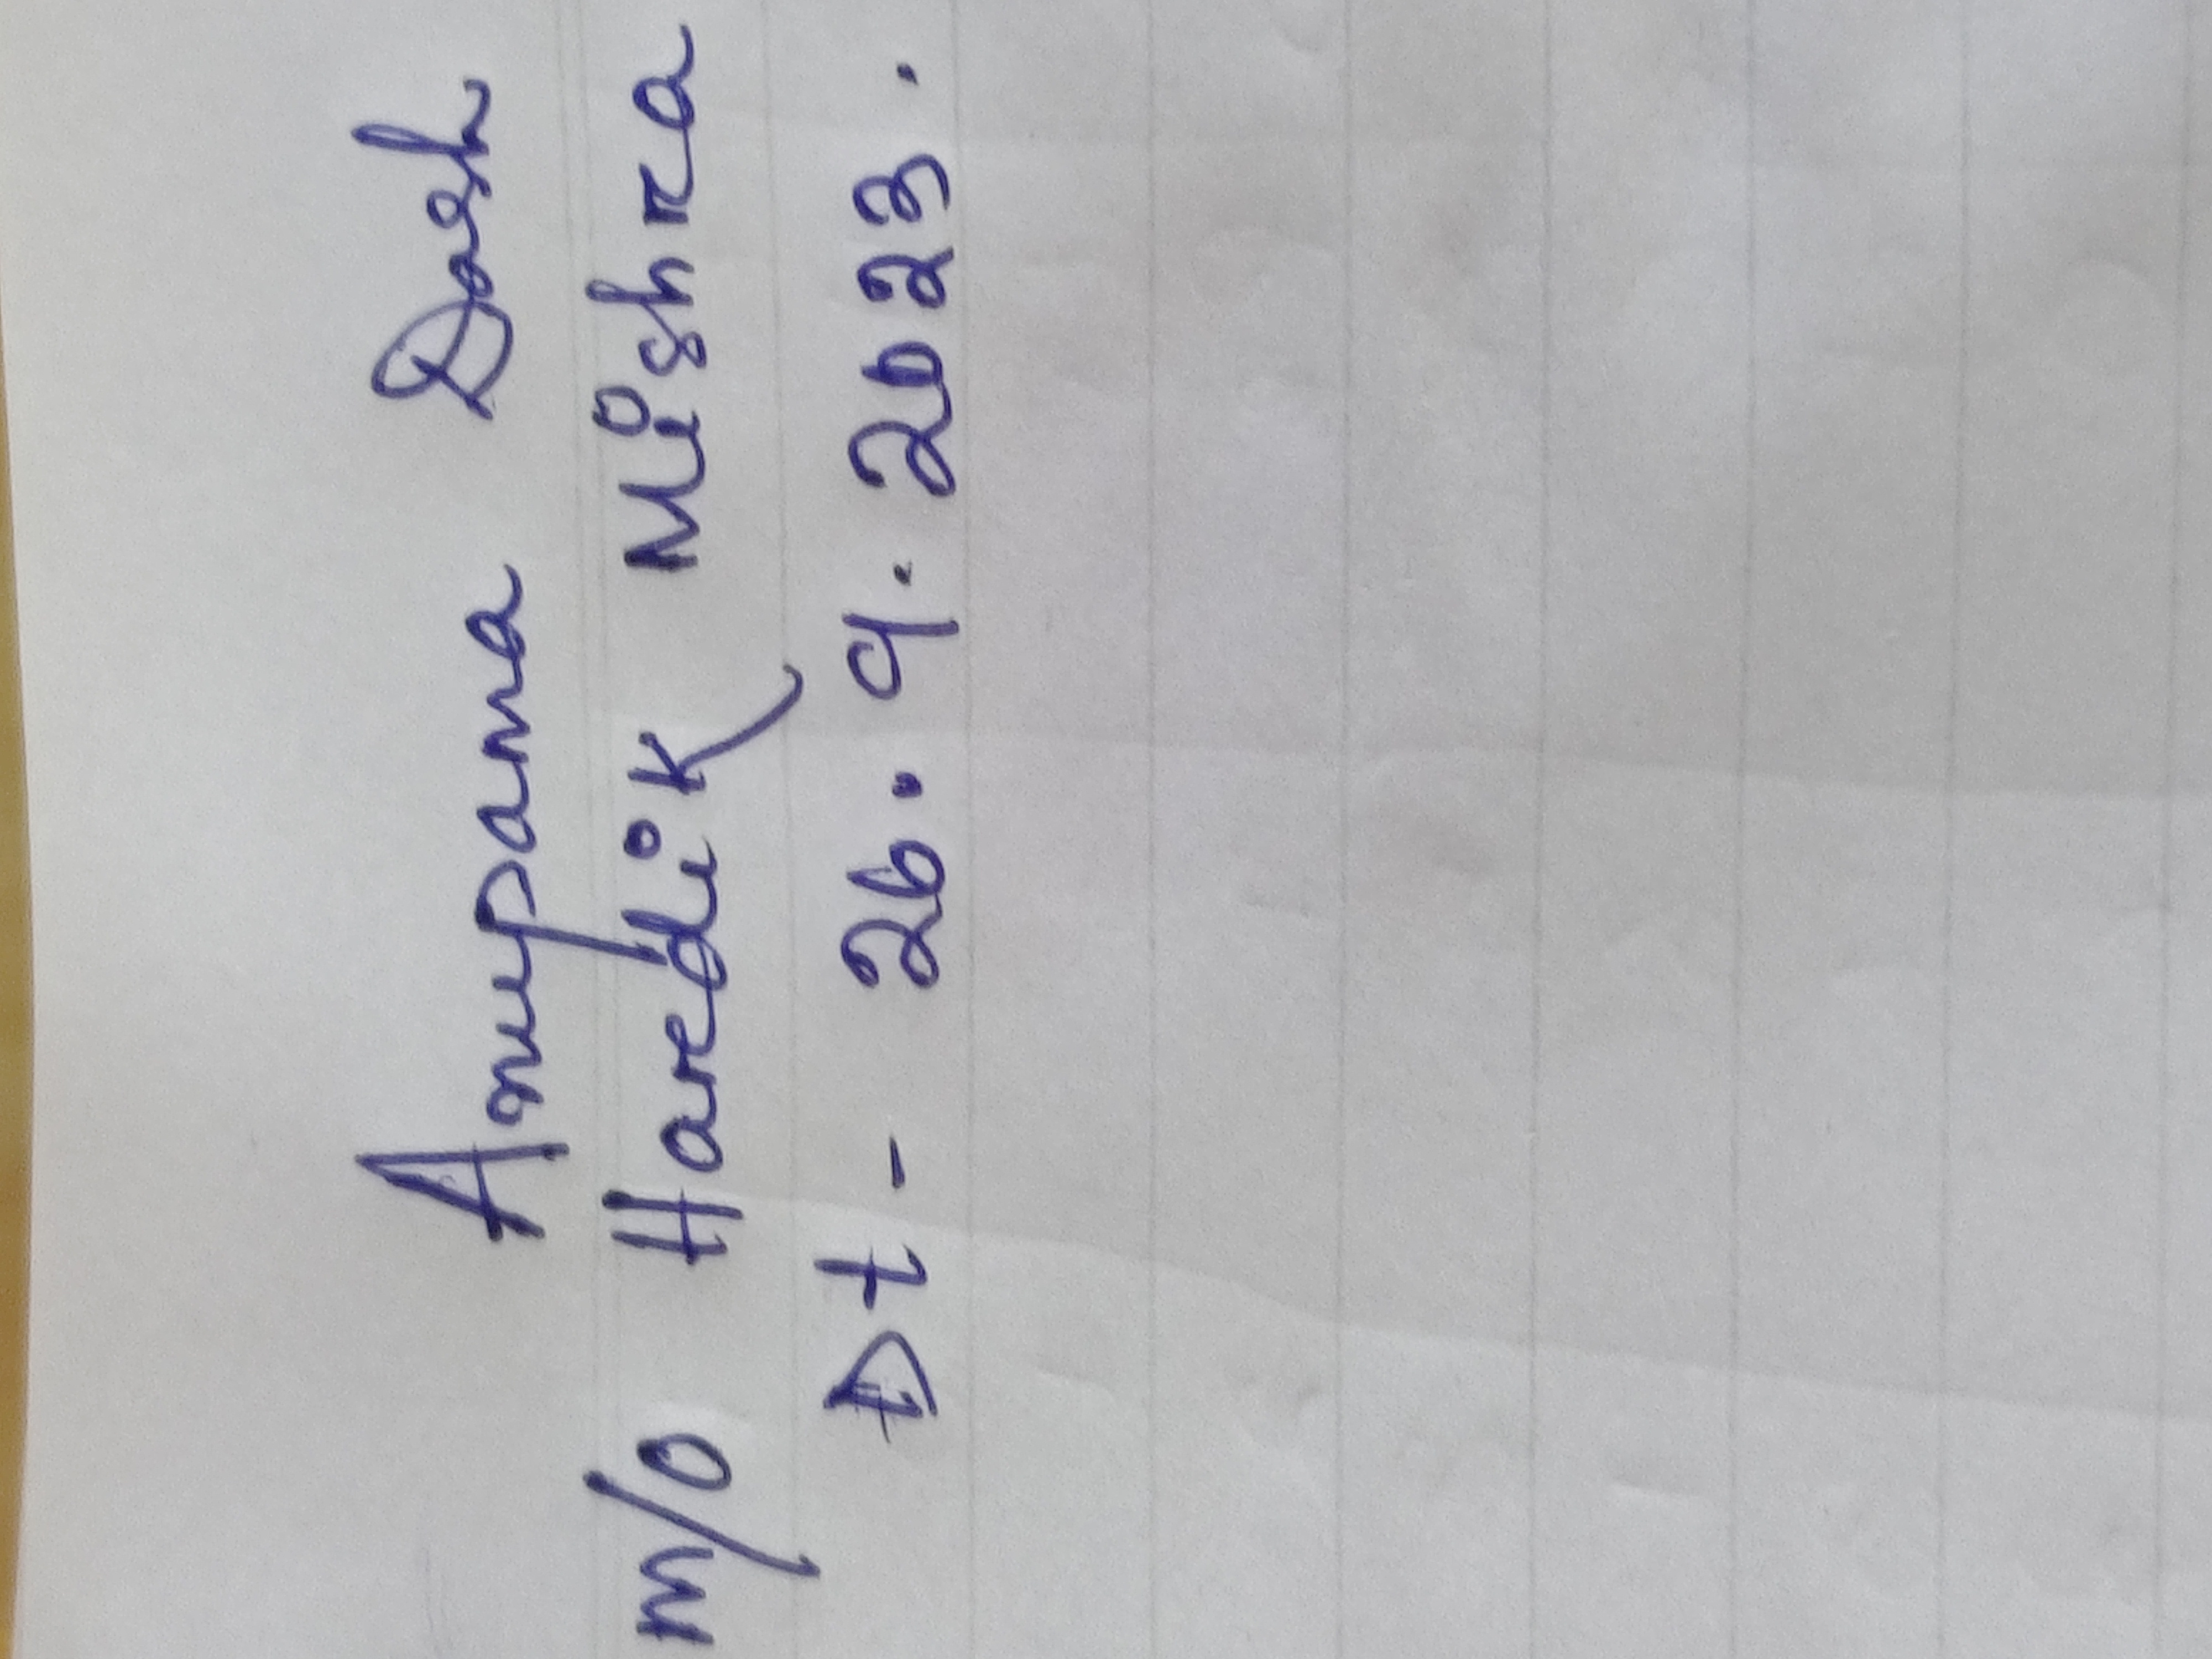 Anupama Dash
m/o Hardik Mishra
Dt - 26.9.2023.